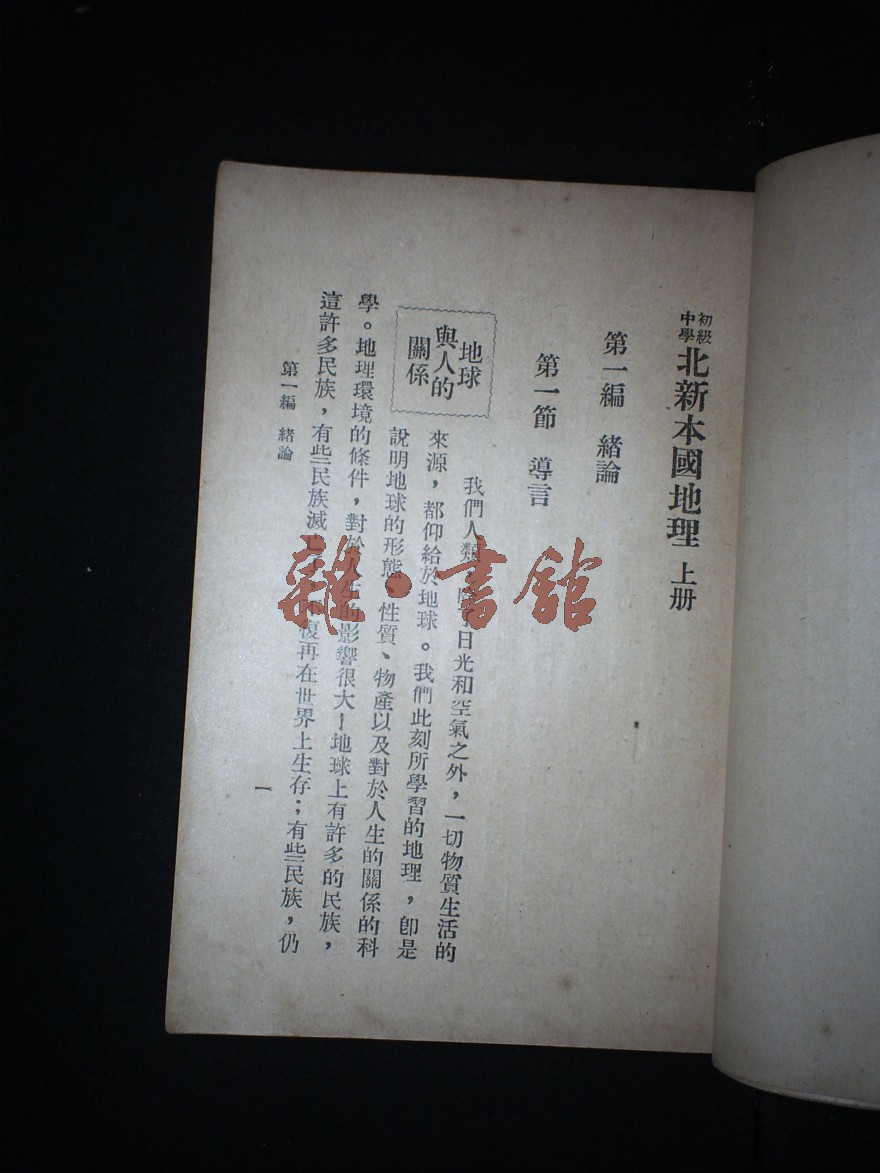 初級
中學
北新本國地理 上册
第一編 緒論
第一節 導言
地球
與人的
關係
我們人類，除了日光和空氣之外，一切物質生活的
來源，都仰給於地球。我們此刻所學習的地理，卽是
說明地球的形態、性質、物產以及對於人生的關係的科
學。地理環境的條件，對於人生的影響很大——地球上有許多的民族，
這許多民族，有些民族滅亡了，不復再在世界上生存；有些民族，仍
第一編 緒論
一
雜·書館